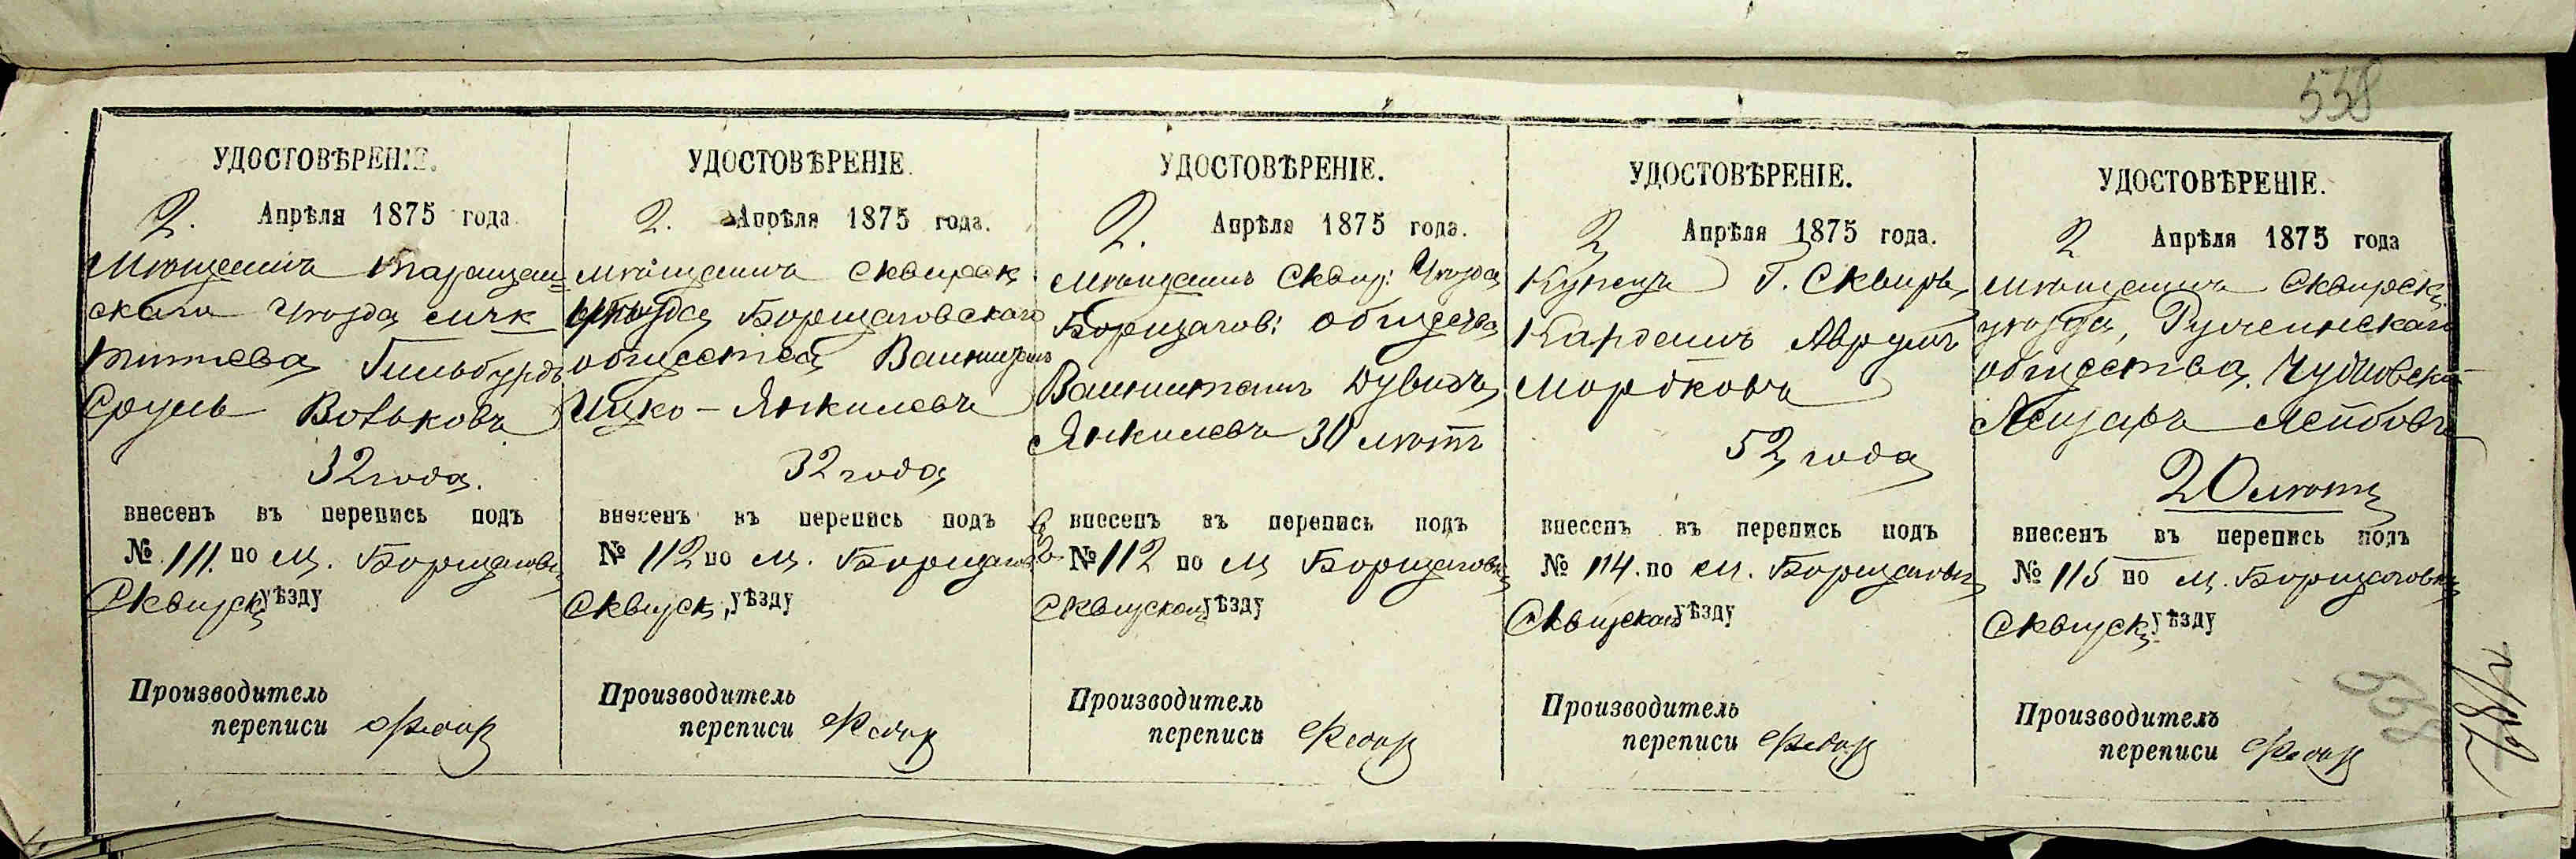 558
УДОСТОВѢРЕНІЕ.
2. Апрѣля 1875 года
Мѣщанинъ Таращан=
скаго Уѣзда
Тетіева
Сруль Вольковъ
32 года.
внесенъ въ перепись подъ
№ 111. по м. Борщаговк
Сквирск уѣзду
Производитель
переписи
УДОСТОВѢРЕНІЕ.
2. Апрѣля 1875 года.
Мѣщанинъ Сквирск
Уѣзда Борщаговскаго
общества Ваинштеинъ
Ицко - Янкилевъ
32 года
внесенъ въ перепись подъ
№ 112 по м. Борщагов
Сквирск. уѣзду
Производитель
переписи
УДОСТОВѢРЕНІЕ.
2. Апрѣля 1875 года.
Мѣщанинъ Сквир: Уѣзда
Борщагов: общества
Ваинштеинъ Дувидъ
Янкилевъ 30 лѣтъ
внесенъ въ перепись подъ
№ 112 по м Борщаговк
Сквирском уѣзду
Производитель
переписи
УДОСТОВѢРЕНІЕ.
2 Апрѣля 1875 года.
Купецъ Г. Сквиры
Кардашъ Аврумъ
Мордковъ
52 года
внесенъ въ перепись подъ
№ 114. по м. Борщаговк
Сквирском уѣзду
Производитель
переписи
УДОСТОВѢРЕНІЕ.
2 Апрѣля 1875 года
Мѣщанинъ Сквирск
уѣзда, Ружинскаго
общества, Чудновскій
Лейзаръ Лейбовъ
20 лѣтъ
внесенъ въ перепись подъ
№ 115 по м. Борщаговк
Сквирск уѣзду
Производитель
переписи
558